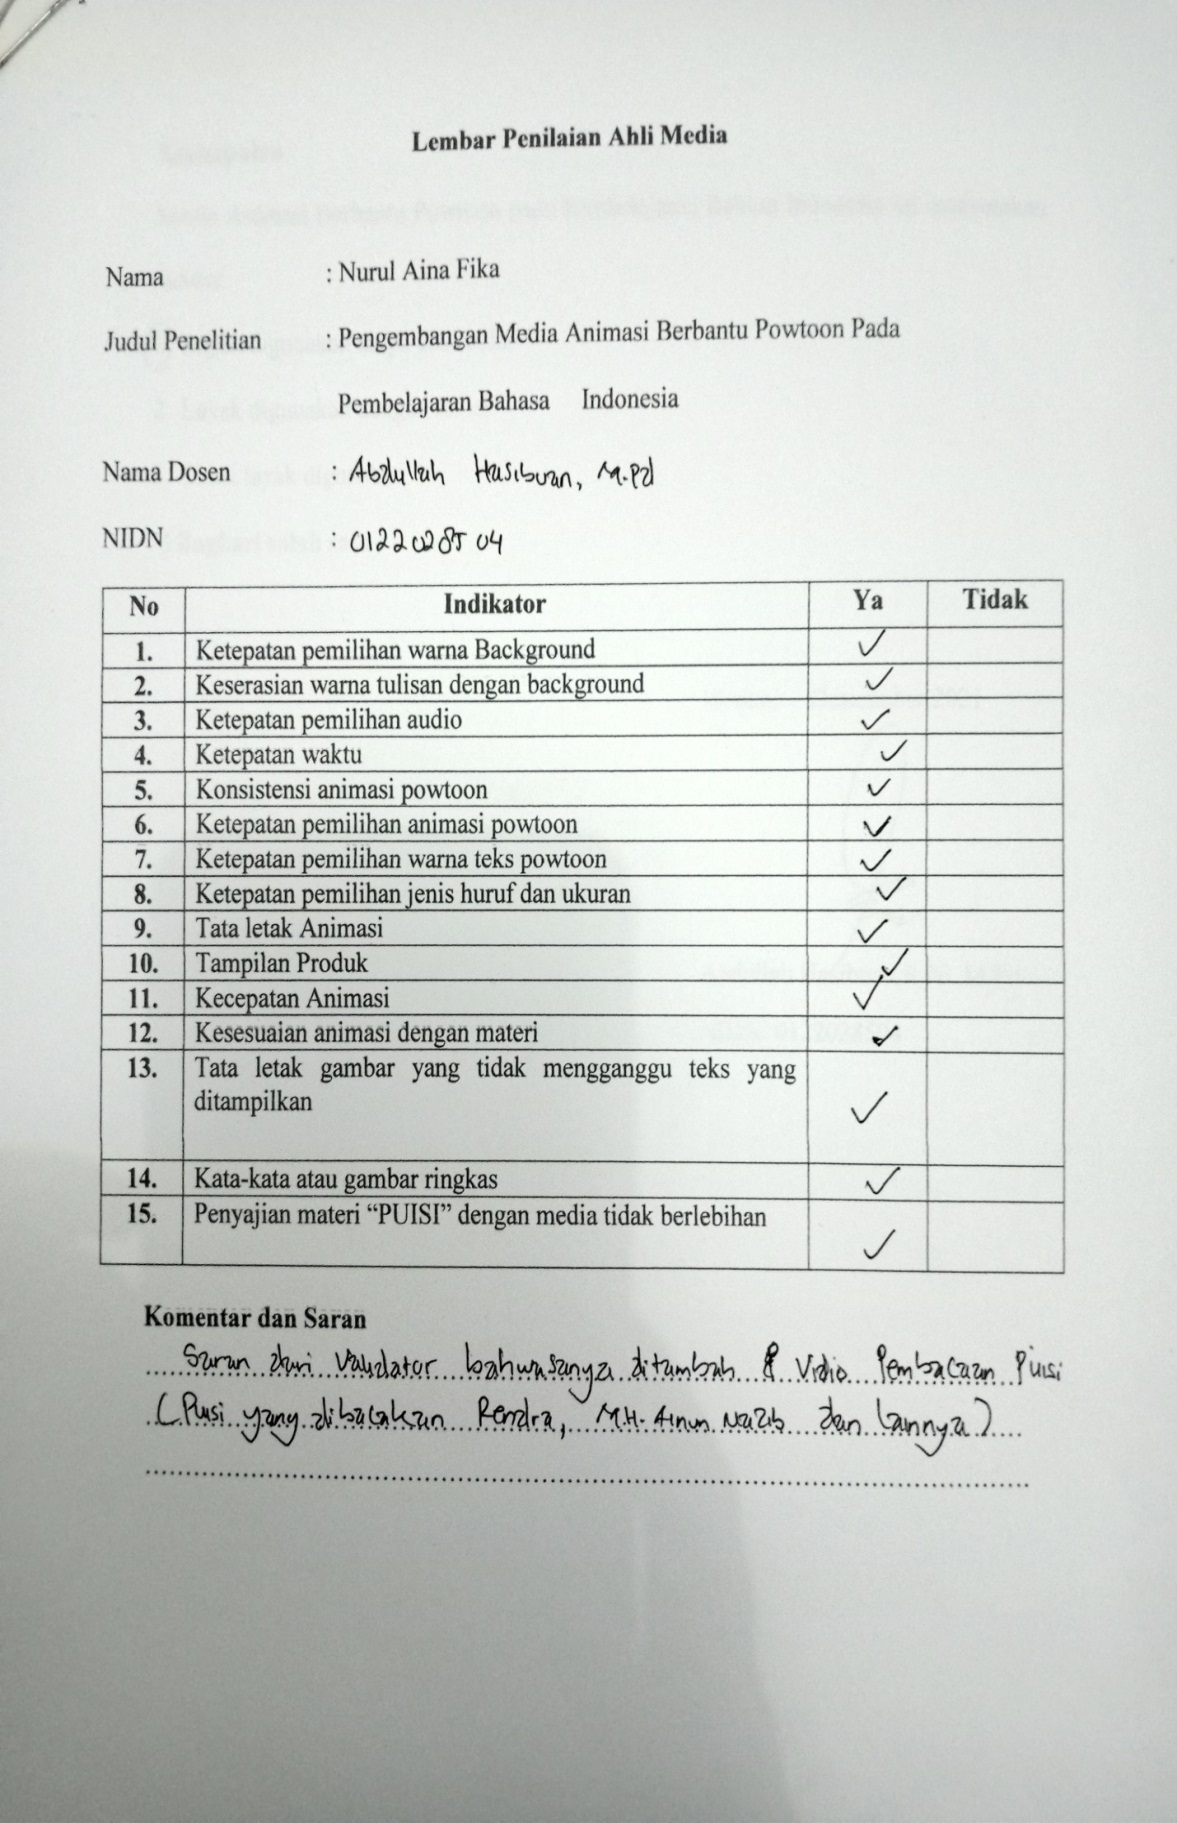 Lembar Penilaian Ahli Media
Nama : Nurul Aina Fika
Judul Penelitian : Pengembangan Media Animasi Berbantu Powtoon Pada
Pembelajaran Bahasa Indonesia
Nama Dosen : Abdullah Hasibuan, M.Pd
NIDN : 0122028504
No Indikator Ya Tidak
1. Ketepatan pemilihan warna Background ✓
2. Keserasian warna tulisan dengan background ✓
3. Ketepatan pemilihan audio ✓
4. Ketepatan waktu ✓
5. Konsistensi animasi powtoon ✓
6. Ketepatan pemilihan animasi powtoon ✓
7. Ketepatan pemilihan warna teks powtoon ✓
8. Ketepatan pemilihan jenis huruf dan ukuran ✓
9. Tata letak Animasi ✓
10. Tampilan Produk ✓
11. Kecepatan Animasi ✓
12. Kesesuaian animasi dengan materi ✓
13. Tata letak gambar yang tidak mengganggu teks yang
ditampilkan ✓
14. Kata-kata atau gambar ringkas ✓
15. Penyajian materi “PUISI” dengan media tidak berlebihan ✓
Komentar dan Saran
Saran dari Validator bahwasanya ditambah Vidio Pembacaan Puisi
(Puisi yang dibacakan Rendra, M.H. Ainun Nazib dan lannya)